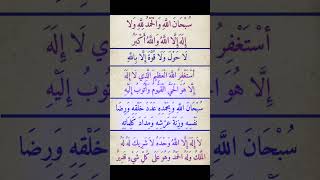 سُبْحَانَ اللَّهِ وَالْحَمْدُ لِلَّهِ وَلَا
إِلَهَ إِلَّا اللَّهُ وَاللَّهُ أَكْبَرُ
لَا حَوْلَ وَلَا قُوَّةَ إِلَّا بِاللَّهِ
أَسْتَغْفِرُ اللَّهَ الْعَظِيمَ الَّذِي لَا إِلَهَ
إِلَّا هُوَ الْحَيُّ الْقَيُّومُ وَأَتُوبُ إِلَيْهِ
سُبْحَانَ اللَّهِ وَبِحَمْدِهِ عَدَدَ خَلْقِهِ وَرِضَا
نَفْسِهِ وَزِنَةَ عَرْشِهِ وَمِدَادَ كَلِمَاتِهِ
لَا إِلَهَ إِلَّا اللَّهُ وَحْدَهُ لَا شَرِيكَ لَهُ لَهُ
الْمُلْكُ وَلَهُ الْحَمْدُ وَهُوَ عَلَى كُلِّ شَيْءٍ قَدِيرٌ